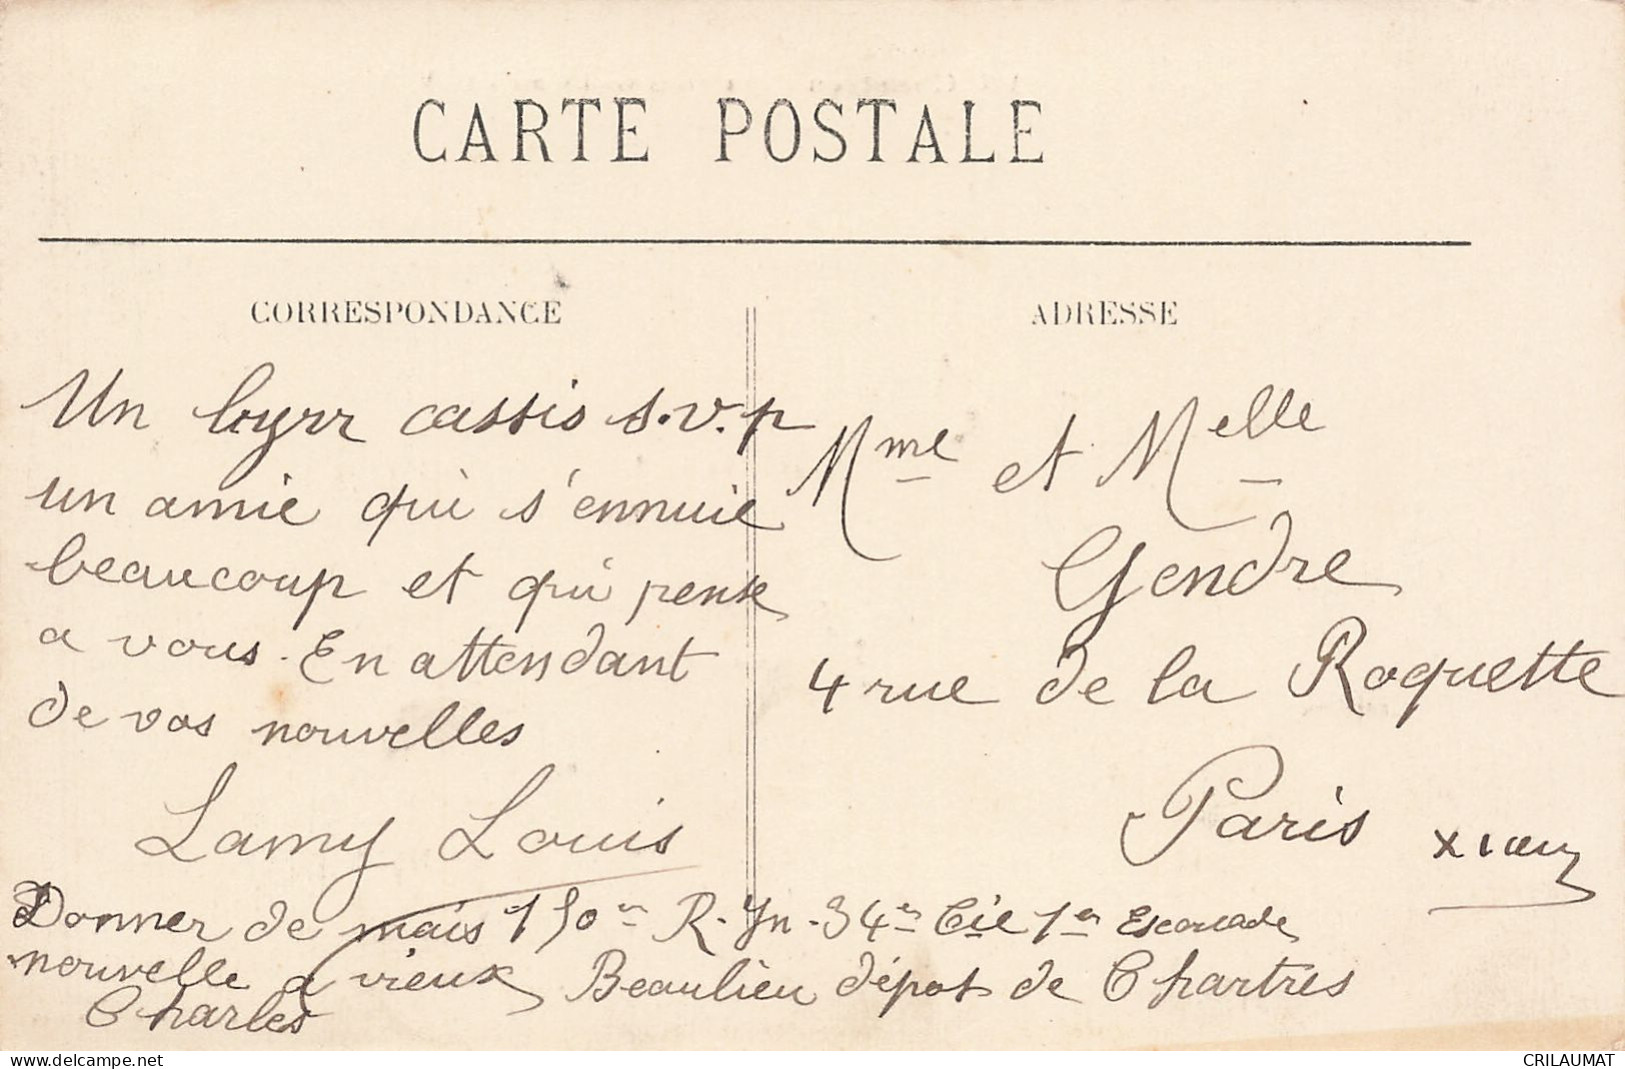 CARTE POSTALE
CORRESPONDANCE
Un byrr cassis s.v.p
un amie qui s'ennuie
beaucoup et qui pense
a vous. En attendant
de vos nouvelles
Lamy Louis
Donner de mais
nouvelle a vieux
Charles
150 R. Yn - 34e Cie 1er Escouade
Beaulieu dépot de Chartres
ADRESSE
Mme et Melle
Gendre
4 rue de la Roquette
Paris
delcampe.net
CRILAUMAT